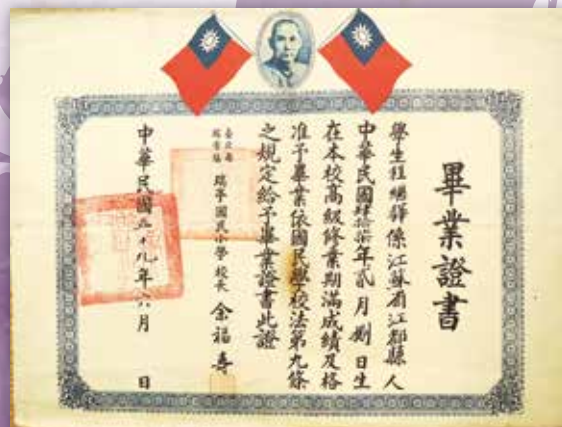 畢業證書
學生程繼鐸係江蘇省江都縣人
中華民國肆拾柒年貳月捌日生
在本校高級修業期滿成績及格
准予畢業依國民學校法第九條
之規定給予畢業證書此證
瑞亭國民小學校長余福壽
中華民國五十九年六月 日